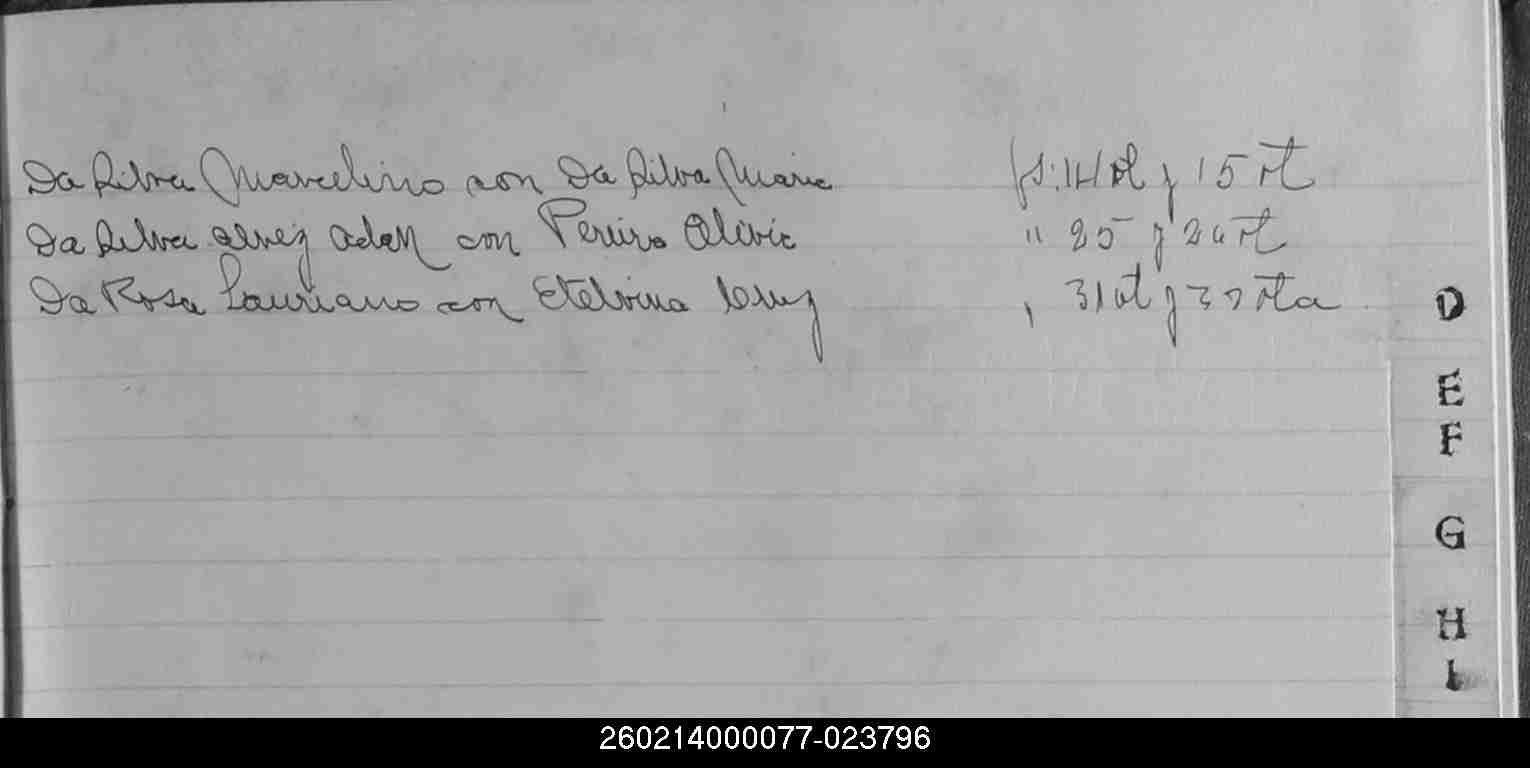 Da Silva Marcelino con Da Silva Maria fs. 14 vt y 15 vt
Da Silva Alvez Adan con Pereira Olivia " 25 y 26 vt
Da Rosa Lauriano con Etelvina Cruz , 31 vt y 32 vta
D
E
F
G
H
I
260214000077-023796